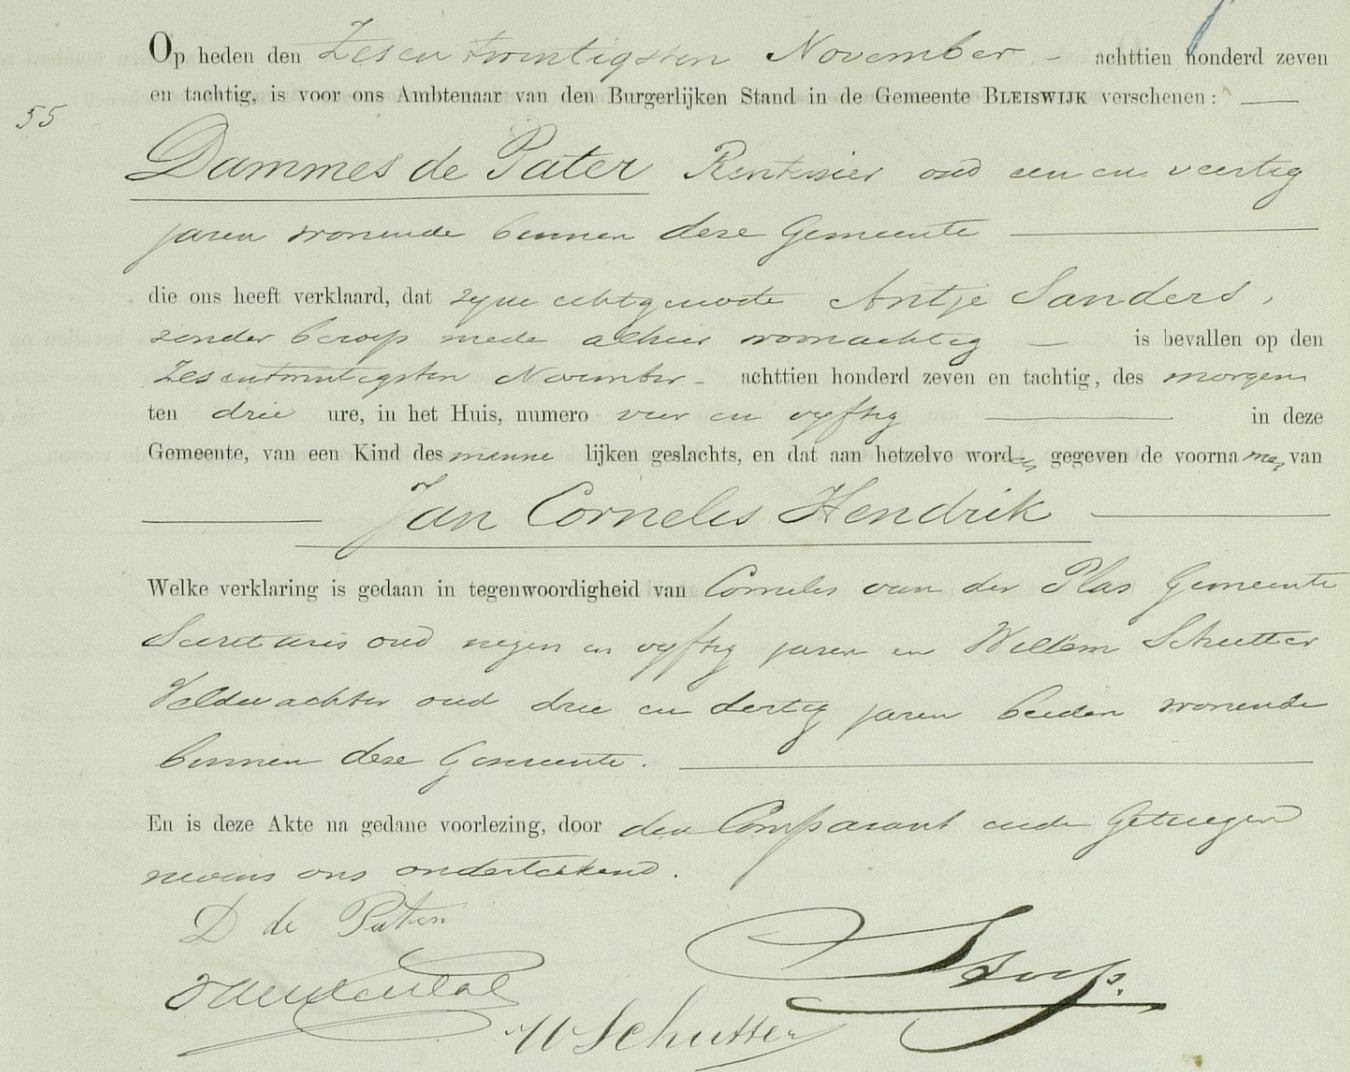 Op heden den Zesentwintigsten November - achttien honderd zeven
en tachtig, is voor ons Ambtenaar van den Burgerlijken Stand in de Gemeente BLEISWIJK verschenen:
55
Dammes de Pater Rentenier oud een en veertig
jaren wonende binnen deze Gemeente
die ons heeft verklaard, dat zyne echtgenoote Antje Sanders,
zonder beroep mede alhier woonachtig - is bevallen op den
Zesentwintigsten November - achttien honderd zeven en tachtig, des morgens
ten drie ure, in het Huis, numero vier en vyftig in deze
Gemeente, van een Kind des manne lijken geslachts, en dat aan hetzelve worden gegeven de voornamen van
Jan Cornelis Hendrik
Welke verklaring is gedaan in tegenwoordigheid van Cornelis van der Plas Gemeente
Secretaris oud negen en vyftig jaren en Willem Schutter
Veldwachter oud drie en dertig jaren beiden wonende
binnen deze Gemeente.
En is deze Akte na gedane voorlezing, door den Comparant en de Getuigen
nevens ons onderteekend.
D de Pater
W Schutter